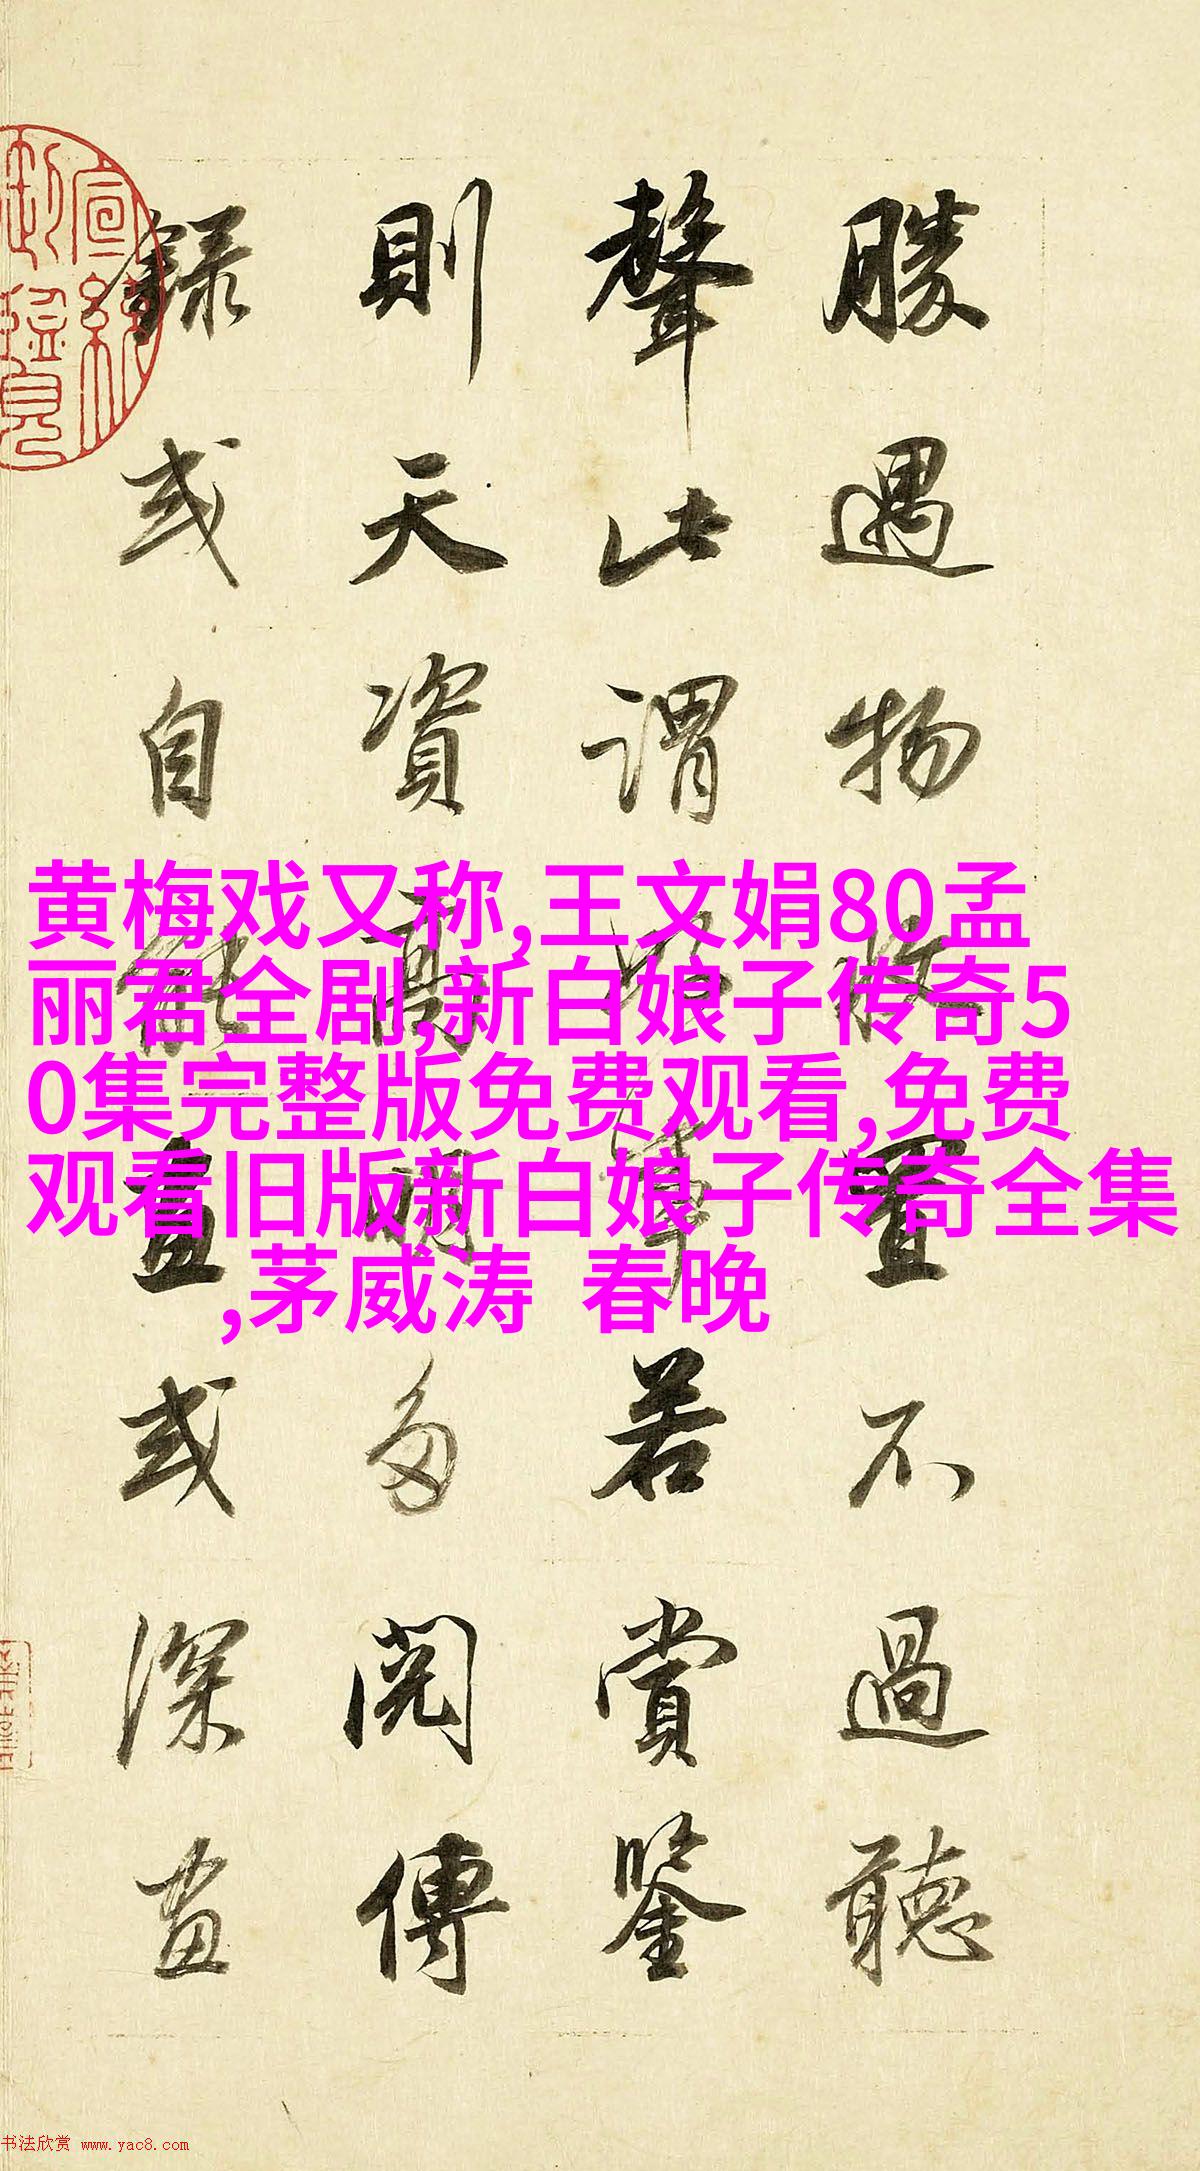 勝遇物收置不過聽
聲此謂好事若賞鑒
則天資高明多閱傳
錄或自能畫或深畫
黄梅戏又称,王文娟80孟
丽君全剧,新白娘子传奇5
0集完整版免费观看,免费
观看旧版新白娘子传奇全集
,茅威涛 春晚
书法欣赏 www.yac8.com